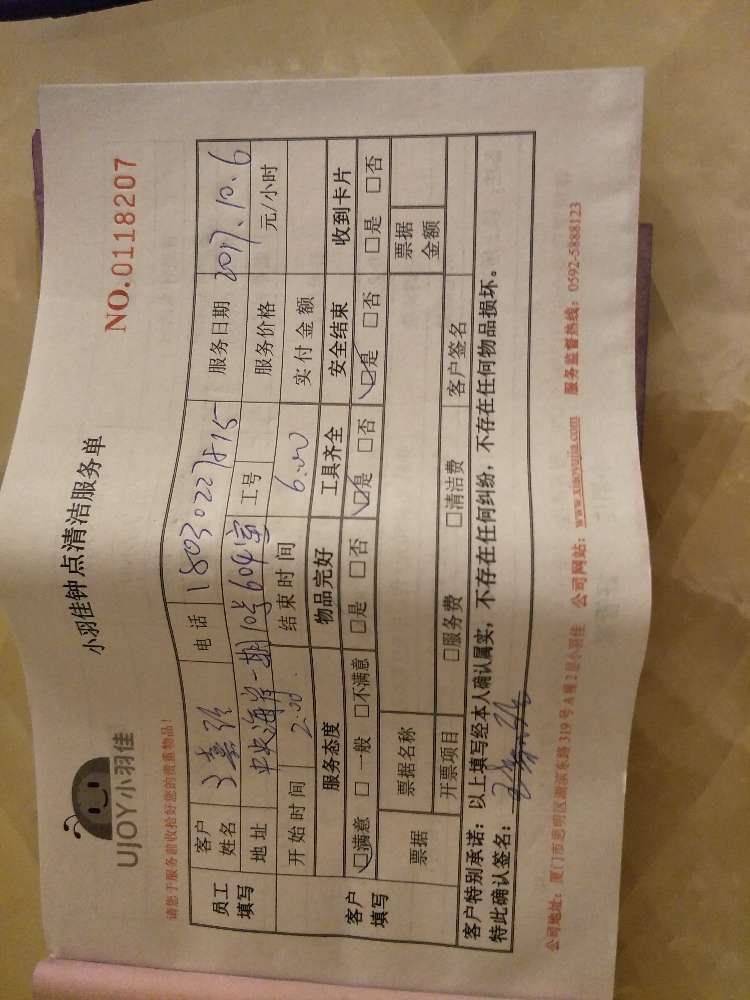 UJOY小羽佳
小羽佳钟点清洁服务单
NO.0118207
请您于服务前收拾好您的贵重物品!
员工填写
客户姓名
电话 18030227815
服务日期 2017.10.6
地址 中央海岸一期10号604室
工号
服务价格 元/小时
开始时间 2:00
结束时间 6:00
实付金额
客户填写
服务态度 物品完好 工具齐全 安全结束 收到卡片
☑满意 □一般 □不满意 □是 □否 ☑是 □否 ☑是 □否 □是 □否
票据
票据名称
票据金额
开票项目 □服务费 □清洁费 客户签名
客户特别承诺:以上填写经本人确认属实,不存在任何纠纷,不存在任何物品损坏。
特此确认签名:
公司地址:厦门市思明区湖滨东路319号A幢2层小羽佳 公司网站:www.xiaoyujia.com 服务监督热线:0592-5888123